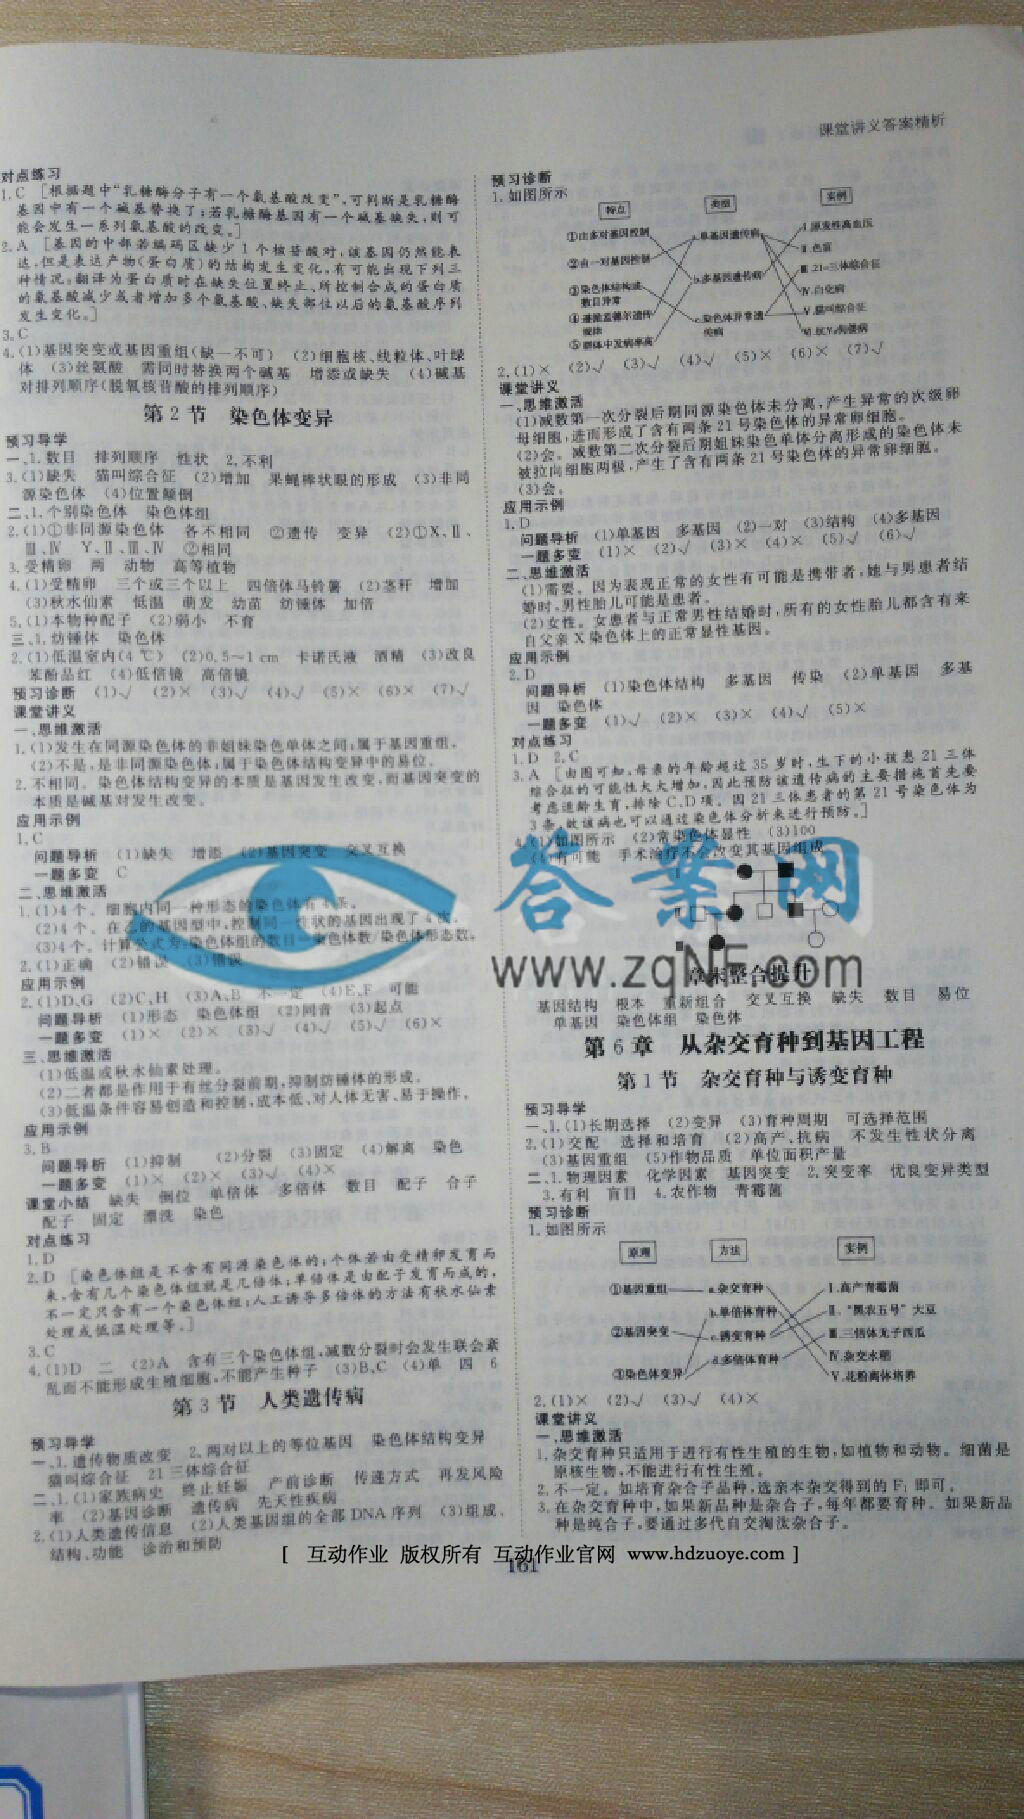 课堂讲义答案精析
对点练习
1.C [根据题中“乳糖酶分子有一个氨基酸改变”,可判断是乳糖酶
基因中有一个碱基替换了;若乳糖酶基因有一个碱基缺失,则可
能会发生一系列氨基酸的改变。]
2.A [基因的中部若编码区缺少1个核苷酸对,该基因仍然能表
达,但是表达产物(蛋白质)的结构发生变化,有可能出现下列三
种情况:翻译为蛋白质时在缺失位置终止、所控制合成的蛋白质
的氨基酸减少或者增加多个氨基酸、缺失部位以后的氨基酸序列
发生变化。]
3.C
4.(1)基因突变或基因重组(缺一不可) (2)细胞核、线粒体、叶绿
体 (3)丝氨酸 需同时替换两个碱基 增添或缺失 (4)碱基
对排列顺序(脱氧核苷酸的排列顺序)
第2节 染色体变异
预习导学
一、1.数目 排列顺序 性状 2.不利
3.(1)缺失 猫叫综合征 (2)增加 果蝇棒状眼的形成 (3)非同
源染色体 (4)位置颠倒
二、1.个别染色体 染色体组
2.(1)①非同源染色体 各不相同 ②遗传 变异 (2)①X、Ⅱ、
Ⅲ、Ⅳ Y、Ⅱ、Ⅲ、Ⅳ ②相同
3.受精卵 两 动物 高等植物
4.(1)受精卵 三个或三个以上 四倍体马铃薯 (2)茎秆 增加
(3)秋水仙素 低温 萌发 幼苗 纺锤体 加倍
5.(1)本物种配子 (2)弱小 不育
三、1.纺锤体 染色体
2.(1)低温室内(4 ℃) (2)0.5~1 cm 卡诺氏液 酒精 (3)改良
苯酚品红 (4)低倍镜 高倍镜
预习诊断 (1)√ (2)× (3)√ (4)√ (5)× (6)× (7)√
课堂讲义
一、思维激活
1.(1)发生在同源染色体的非姐妹染色单体之间;属于基因重组。
(2)不是,是非同源染色体;属于染色体结构变异中的易位。
2.不相同。染色体结构变异的本质是基因发生改变,而基因突变的
本质是碱基对发生改变。
应用示例
1.C
问题导析 (1)缺失 增添 (2)基因突变 交叉互换
一题多变 C
二、思维激活
1.(1)4个。细胞内同一种形态的染色体有4条。
(2)4个。在乙的基因型中,控制同一性状的基因出现了4次。
(3)4个。计算公式为:染色体组的数目=染色体数/染色体形态数。
2.(1)正确 (2)错误 (3)错误
应用示例
2.(1)D、G (2)C、H (3)A、B 不一定 (4)E、F 可能
问题导析 (1)形态 染色体组 (2)同音 (3)起点
一题多变 (1)× (2)× (3)√ (4)√ (5)√ (6)×
三、思维激活
(1)低温或秋水仙素处理。
(2)二者都是作用于有丝分裂前期,抑制纺锤体的形成。
(3)低温条件容易创造和控制,成本低、对人体无害、易于操作。
应用示例
3.B
问题导析 (1)抑制 (2)分裂 (3)固定 (4)解离 染色
一题多变 (1)× (2)× (3)√ (4)×
课堂小结 缺失 倒位 单倍体 多倍体 数目 配子 合子
配子 固定 漂洗 染色
对点练习
1.D
2.D [染色体组是不含有同源染色体的;个体若由受精卵发育而
来,含有几个染色体组就是几倍体;单倍体是由配子发育而成的,
不一定只含有一个染色体组;人工诱导多倍体的方法有秋水仙素
处理或低温处理等。]
3.C
4.(1)D 二 (2)A 含有三个染色体组,减数分裂时会发生联会紊
乱而不能形成生殖细胞,不能产生种子 (3)B、C (4)单 四 6
第3节 人类遗传病
预习导学
一、1.遗传物质改变 2.两对以上的等位基因 染色体结构变异
猫叫综合征 21三体综合征
二、1.(1)家族病史 终止妊娠 产前诊断 传递方式 再发风险
率 (2)基因诊断 遗传病 先天性疾病
2.(1)人类遗传信息 (2)人类基因组的全部DNA序列 (3)组成、
结构、功能 诊治和预防
预习诊断
1.如图所示
特点 类型 实例
①由多对基因控制
②由一对基因控制
③染色体结构或
数目异常
④遵循孟德尔遗传
规律
⑤群体中发病率高
a.单基因遗传病
b.多基因遗传病
c.染色体异常遗
传病
Ⅰ.原发性高血压
Ⅱ.色盲
Ⅲ.21-三体综合征
Ⅳ.白化病
Ⅴ.猫叫综合征
2.(1)× (2)√ (3)√ (4)√ (5)× (6)× (7)√
课堂讲义
一、思维激活
(1)减数第一次分裂后期同源染色体未分离,产生异常的次级卵
母细胞,进而形成了含有两条21号染色体的异常卵细胞。
(2)会。减数第二次分裂后期姐妹染色单体分离形成的染色体未
被拉向细胞两极,产生了含有两条21号染色体的异常卵细胞。
(3)会。
应用示例
1.D
问题导析 (1)单基因 多基因 (2)一对 (3)结构 (4)多基因
一题多变 (1)× (2)√ (3)× (4)× (5)√ (6)√
二、思维激活
(1)需要。因为表现正常的女性有可能是携带者,她与男患者结
婚时,男性胎儿可能是患者。
(2)女性。女患者与正常男性结婚时,所有的女性胎儿都含有来
自父亲X染色体上的正常显性基因。
应用示例
2.D
问题导析 (1)染色体结构 多基因 传染 (2)单基因 多基
因 染色体
一题多变 (1)√ (2)× (3)× (4)√ (5)×
对点练习
1.D 2.C
3.A [由图可知,母亲的年龄超过35岁时,生下的小孩患21三体
综合征的可能性大大增加,因此预防该遗传病的主要措施首先要
考虑适龄生育,排除C、D项。因21三体患者的第21号染色体为
3条,故该病也可以通过染色体分析来进行预防。]
4.(1)如图所示 (2)常染色体显性 (3)100
(4)有可能 手术治疗不会改变其基因组成
答案网
www.zqNF.com
章末整合提升
基因结构 根本 重新组合 交叉互换 缺失 数目 易位
单基因 染色体组 染色体
第6章 从杂交育种到基因工程
第1节 杂交育种与诱变育种
预习导学
一、1.(1)长期选择 (2)变异 (3)育种周期 可选择范围
2.(1)交配 选择和培育 (2)高产、抗病 不发生性状分离
(3)基因重组 (5)作物品质 单位面积产量
二、1.物理因素 化学因素 基因突变 2.突变率 优良变异类型
3.有利 盲目 4.农作物 青霉菌
预习诊断
1.如图所示
原理 方法 实例
①基因重组
②基因突变
③染色体变异
a.杂交育种
b.单倍体育种
c.诱变育种
d.多倍体育种
Ⅰ.高产青霉菌
Ⅱ.“黑农五号”大豆
Ⅲ.三倍体无子西瓜
Ⅳ.杂交水稻
Ⅴ.花粉离体培养
2.(1)× (2)√ (3)√ (4)×
课堂讲义
一、思维激活
1.杂交育种只适用于进行有性生殖的生物,如植物和动物。细菌是
原核生物,不能进行有性生殖。
2.不一定。如培育杂合子品种,选亲本杂交得到的F₁即可。
3.在杂交育种中,如果新品种是杂合子,每年都要育种。如果新品
种是纯合子,要通过多代自交淘汰杂合子。
[ 互动作业 版权所有 互动作业官网 www.hdzuoye.com ]
161